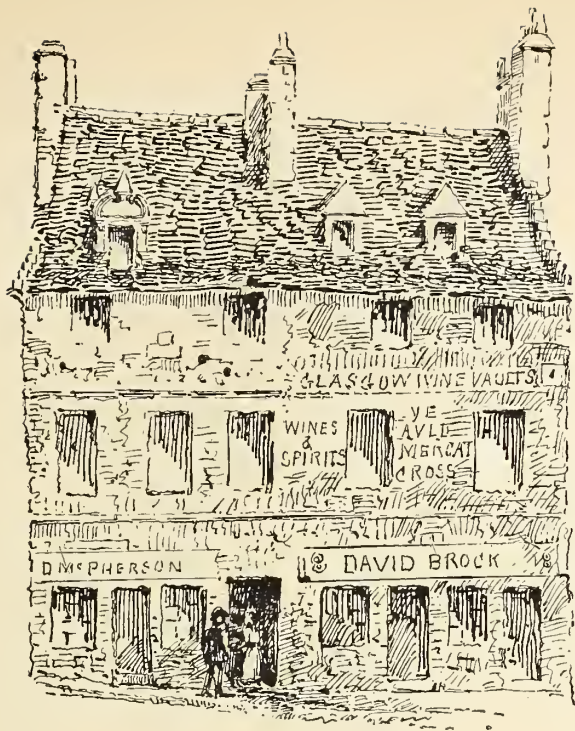 GLASGOW WINE VAULTS
WINES
&
SPIRITS
YE
AULD
MERCAT
CROSS
D McPHERSON
DAVID BROCK